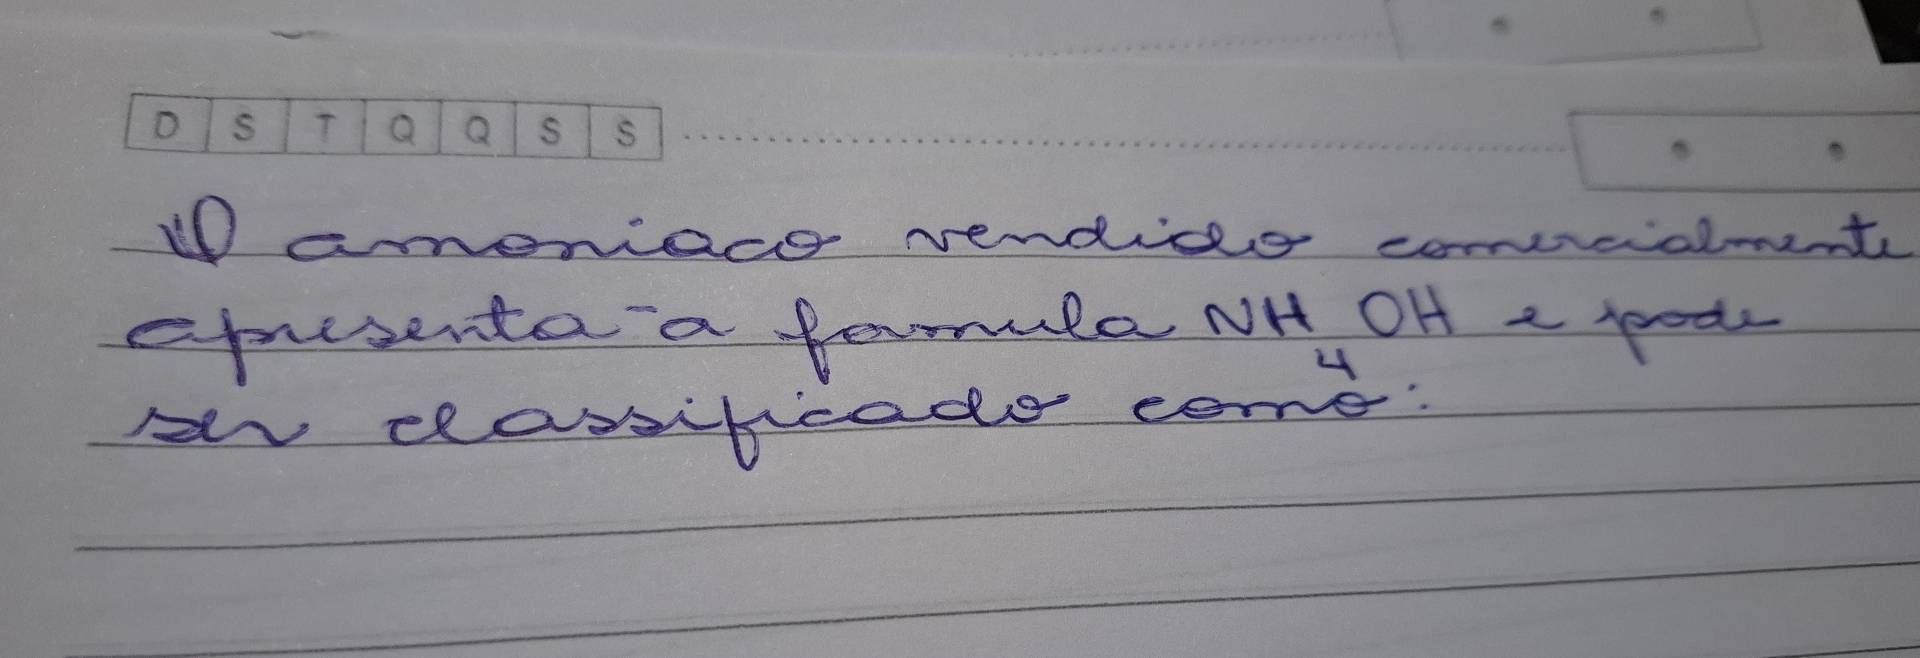 D S T Q Q S S
O amoniaco vendido comercialmente
apresenta a formula NH₄OH e pode
ser classificado como: